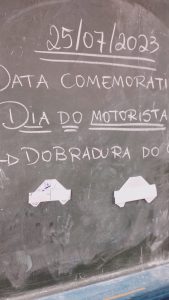 25/07/2023
DATA COMEMORATI
DIA DO MOTORISTA
→ DOBRADURA DO